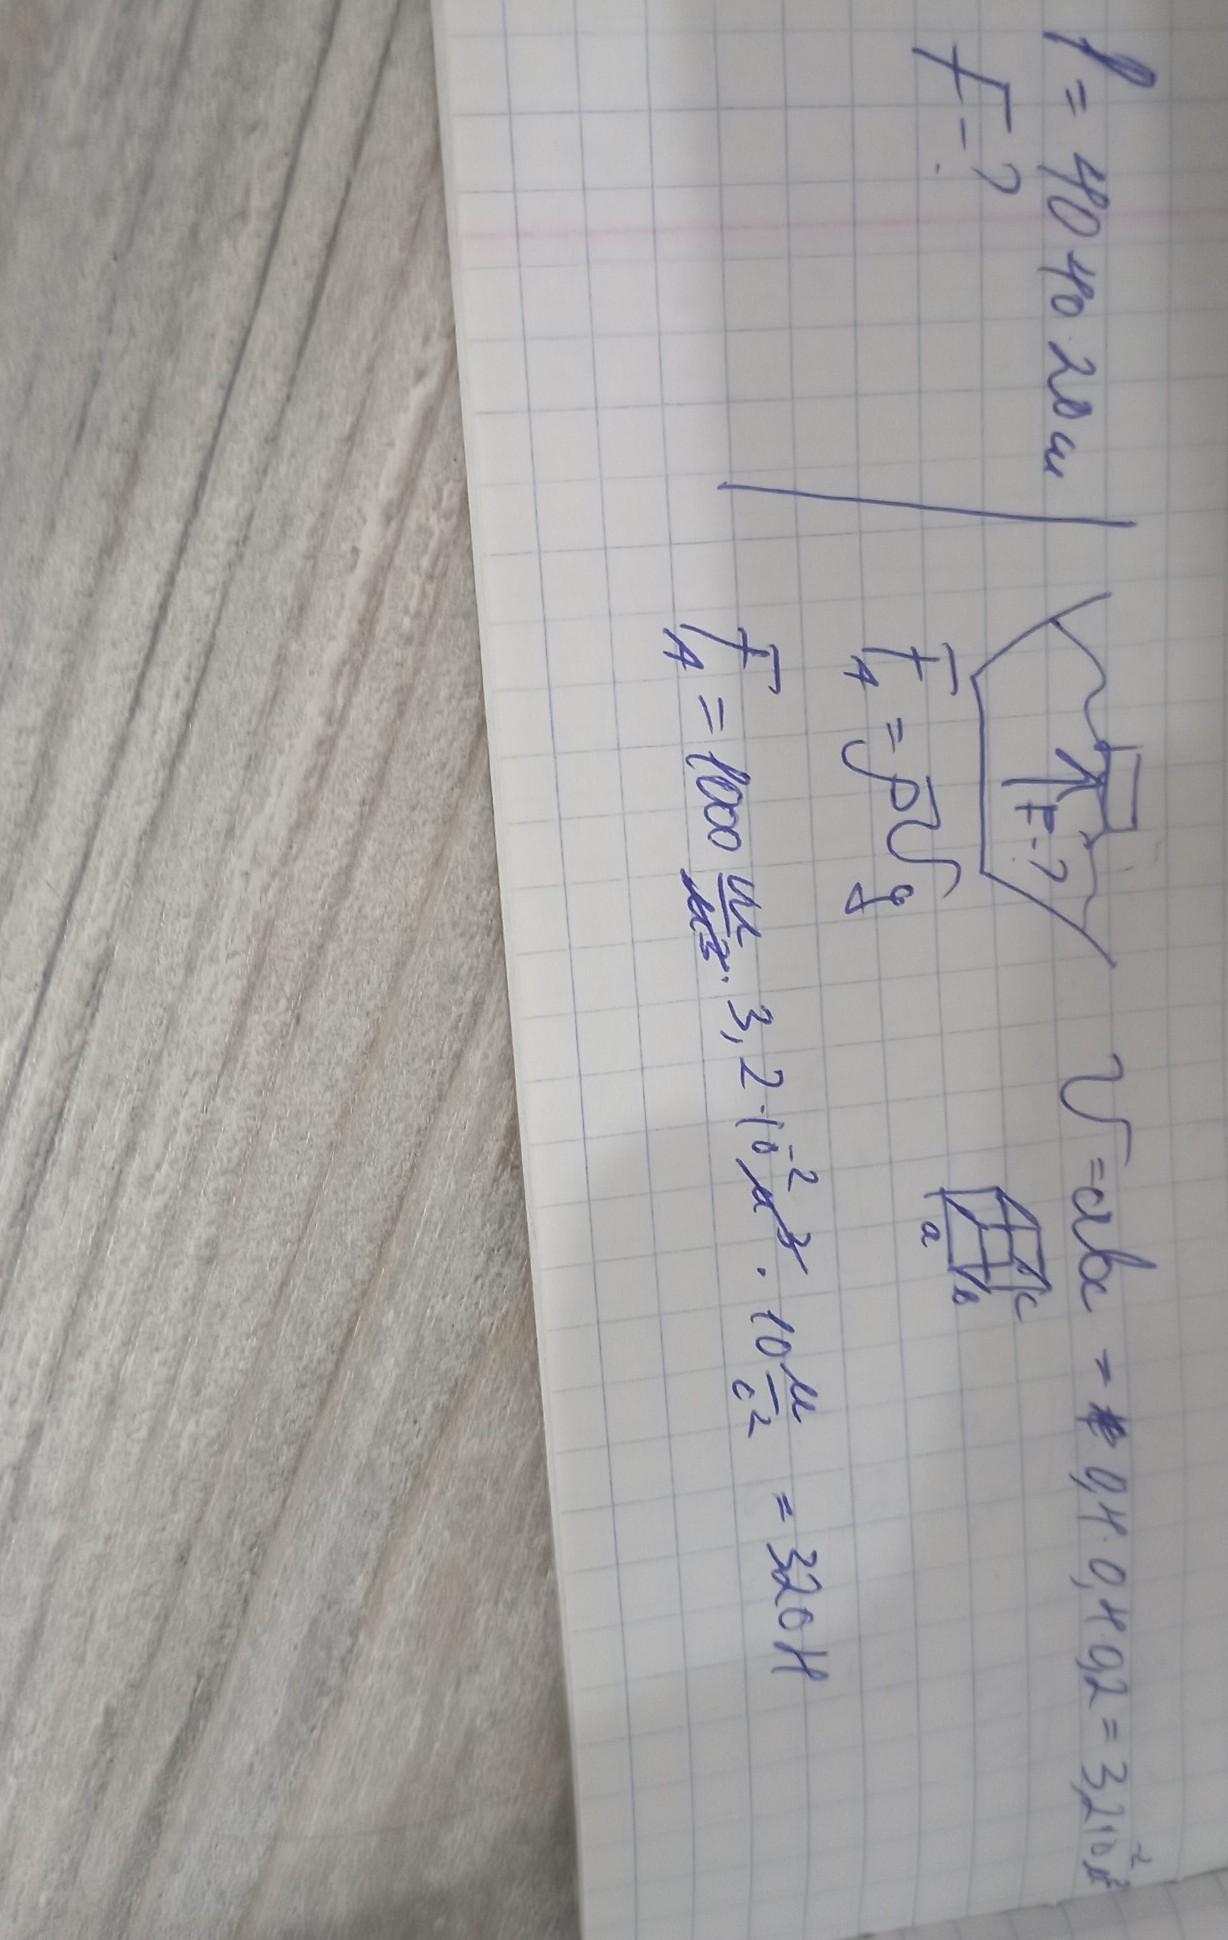 l = 40 40·20 см
F-?
F-?
V = abc = 0,4·0,4·0,2 = 3,2·10⁻² м³
a b c
F_A = ρVg
F_A = 1000 кг/м3 · 3,2·10⁻² м3 · 10 м/с2 = 320 Н